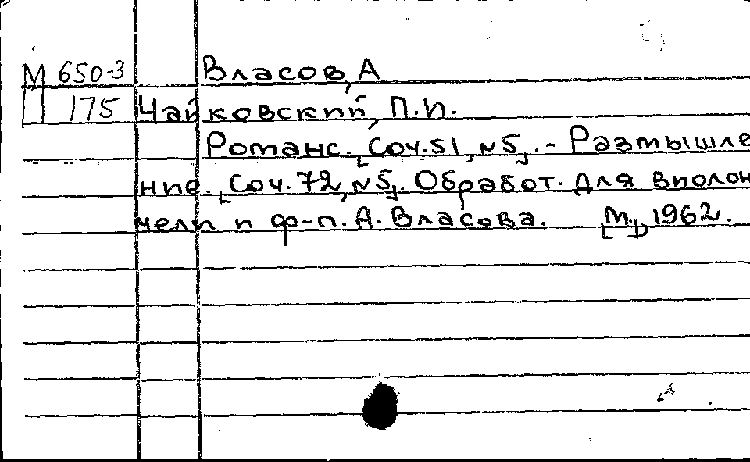 М 650-3 Власов, А
175 Чайковский, П.И.
Романс. [Соч. 51, №5]. - Размышле
ние. [Соч. 72, №5]. Обработ. для виолон
чели и ф-п. А. Власова. [М.], 1962.